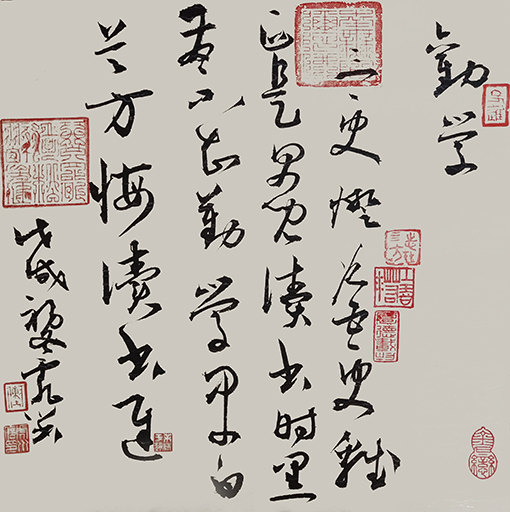 勸学
三更燈火五更雞
正是男兒讀書时黑
髮不知勤學早白
首方悔讀書遲
戊戌